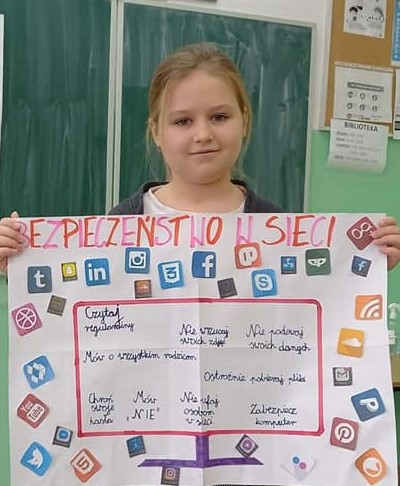 BIBLIOTEKA
BEZPIECZEŃSTWO W SIECI
Czytaj
regulaminy
Nie wrzucaj
swoich zdjęć
Nie podawaj
swoich danych
Mów o wszystkim rodzicom
Ostrożnie pobieraj pliki
Chroń
swoje
hasła
Mów
„NIE"
Nie ufaj
osobom
w sieci
Zabezpiecz
komputer
You
Tube